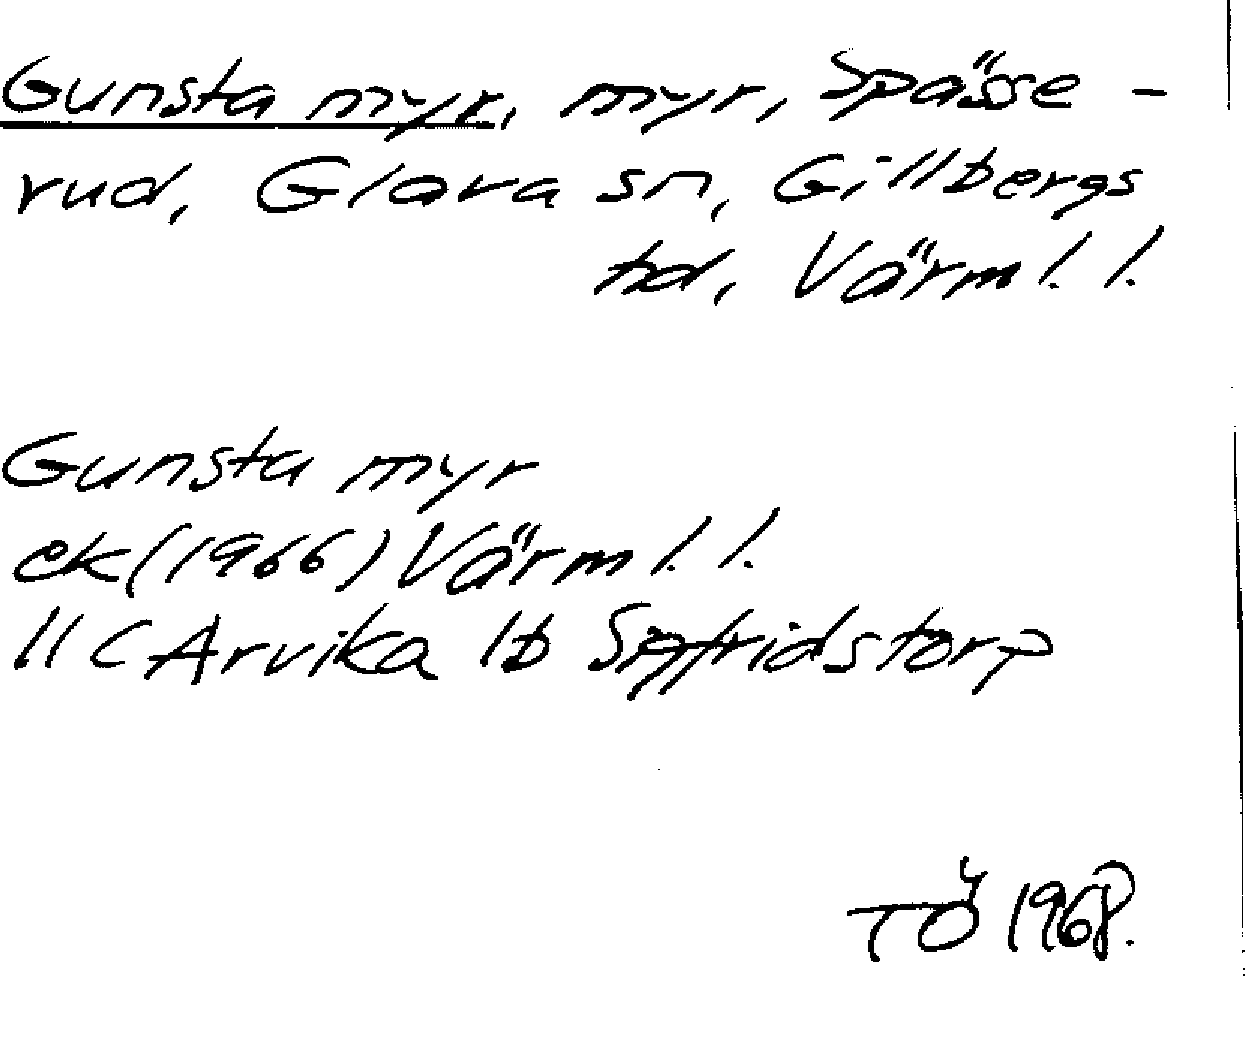 Gunsta myr, myr, Spässe-
rud, Glava sn, Gillbergs
hd, Värml. l.
Gunsta myr
ek (1966) Värml. l.
11 C Arvika 1b Sigfridstorp
TÖ 1968.